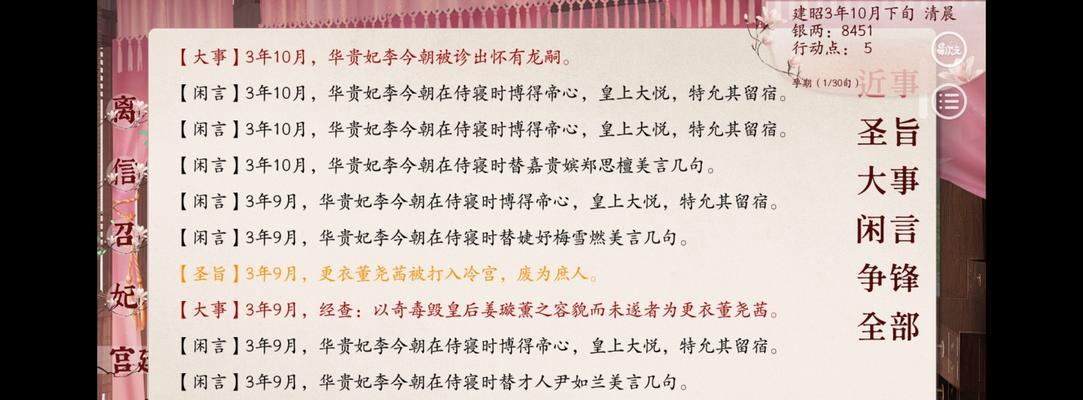 建昭3年10月下旬 清晨
银两：8451
行动点： 5
孕期（1/30旬）
近事
圣旨
大事
闲言
争锋
全部
离
信
召
妃
宫
【大事】3年10月，华贵妃李今朝被诊出怀有龙嗣。
【闲言】3年10月，华贵妃李今朝在侍寝时博得帝心，皇上大悦，特允其留宿。
【闲言】3年10月，华贵妃李今朝在侍寝时博得帝心，皇上大悦，特允其留宿。
【闲言】3年10月，华贵妃李今朝在侍寝时替嘉贵嫔郑思檀美言几句。
【闲言】3年9月，华贵妃李今朝在侍寝时博得帝心，皇上大悦，特允其留宿。
【闲言】3年9月，华贵妃李今朝在侍寝时替婕妤梅雪燃美言几句。
【圣旨】3年9月，更衣董尧茜被打入冷宫，废为庶人。
【大事】3年9月，经查：以奇毒毁皇后姜璇薰之容貌而未遂者为更衣董尧茜。
【闲言】3年9月，华贵妃李今朝在侍寝时博得帝心，皇上大悦，特允其留宿。
【闲言】3年9月，华贵妃李今朝在侍寝时替才人尹如兰美言几句。